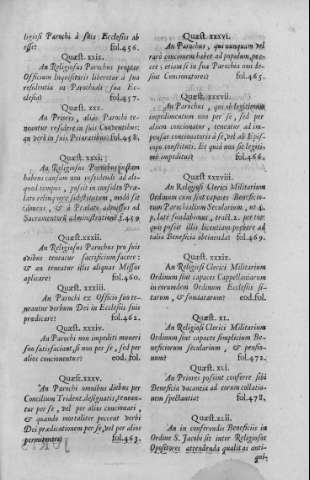 ligiosi Parochi à suis Ecclesiis ab
esse? fol.456.
Quæst. xxix.
An Religiosus Parochus propter
Officium Inquisitoris liberetur à sua
residentia in Parochiali sua Ec
clesia? fol.457.
Quæst. xxx.
An Priores, alias Parochi te-
neantur residere in suis Conventibus:
an verò in suis Prioratibus? fol.458.
Quæst. xxxi.
An Religiosus Parochus justam
habens causam non residendi ad ali-
quod tempus, possit in consultis Præ
latis relinquere substitutum, modò sit
idoneus, & à Prælato admissus ad
Sacramentorū administrationē f.459
Quæst. xxxii.
An Religiosus Parochus pro suis
ovibus teneatur sacrificium facere:
& an teneatur illis aliquas Missas
aplicare? fol.460.
Quæst. xxxiii.
An Parochi ex Officio suo te-
neantur verbum Dei in Ecclesiis suis
prædicare? fol.462.
Quæst. xxxiv.
An Parochi non impediti muneri
suo satisfaciant, si non per se, sed per
alios concionentur? eod. fol.
Quæst. xxxv.
An Parochi omnibus diebus per
Concilium Trident. designatis, tenean-
tur per se, vel per alios concionari,
& quando mortaliter peccent verbi
Dei prædicationem per se, vel per alios
prætermittens? fol.463.
Quæst. xxxvi.
An Parochus, qui nunquam vel
rarò concionem habet ad populum, pec-
cet; etiam si in sua Parochia non de-
sint Concionatores? fol.465.
Quæst. xxxvii.
An Parochus, qui ob legitimum
impedimentum non per se, sed per
alium concionatur, teneatur ad im-
pensas concionatoris à se, vel ab Epis-
copo constitutis. Et quid non sic legiti-
mè impeditus? fol.466.
Quæst. xxxviii.
An Religiosi Clerici Militarium
Ordinum sint capaces Beneficio-
rum Parochialium Secularium,
p. late fundabimus,
quo possit illis licentiam
talia Beneficia obtinenda? fol.469.
Quæst. xxxix.
An Religiosi Clerici Militarium
Ordinum sint capaces Cappellaniarum
in eorumdem Ordinum Ecclesiis si-
tarum, & fundatarum? eod. fol.
Quæst. xl.
An Religiosi Clerici Militarium
Ordinum sint capaces simplicium Be-
neficiorum secularium, & pensio-
num? fol.472.
Quæst. xli.
An Priores possint conferre sibi
Beneficia vacantia ad earum collatio-
nem spectantia? fol.478.
Quæst. xlii.
An in conferendis Beneficiis in
Ordine S. Jacobi sit inter Religiosos
Opositores attendenda qualitas anti-